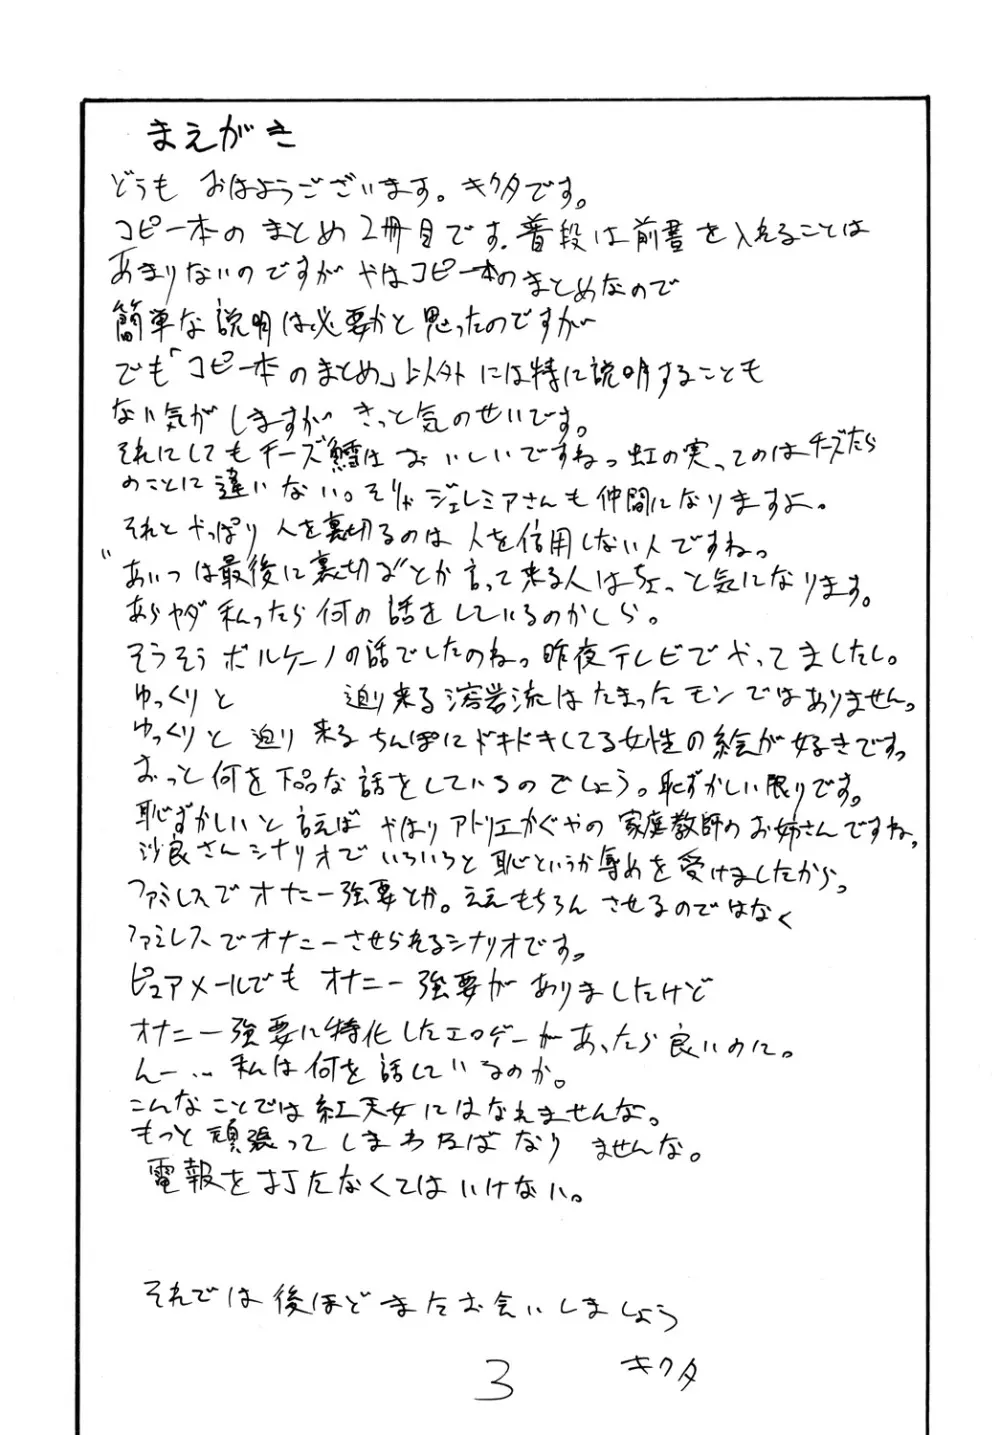 まえがき
どうも おはようございます。キクタです。
コピー本のまとめ2冊目です。普段は前書を入れることは
あまりないのですが やはコピー本のまとめなので
簡単な説明は必要かと思ったのですが
でも「コピー本のまとめ」以外には特に説明することも
ない気がしますが きっと気のせいです。
それにしてもチーズ鱈は おいしいですねっ虹の実ってのはチーズたら
のことに違いない。そりゃジェレミアさんも仲間になりますよ。
それとやっぱり 人を裏切るのは 人を信用しない人ですね。
"あいつは最後に裏切る"とか言って来る人はちょっと気になります。
あらヤダ 私ったら何の話をしているのかしら。
そうそう ボルケーノの話でしたのね。昨夜テレビでやってましたし。
ゆっくりと 迫り来る溶岩流はたまったモンではありません。
ゆっくりと 迫り来るちんぽにドキドキしてる女性の絵が好きですっ
おっと何を下品な話をしているのでしょう。恥ずかしい限りです。
恥ずかしいと言えば やはりアトリエかぐやの家庭教師のお姉さんですね。
沙良さんシナリオでいろいろと恥というか辱めを受けましたから。
ファミレスでオナニー強要とか。ええもちろん させるのではなく
ファミレスでオナニーさせられるシナリオです。
ピュアメールでも オナニー強要がありましたけど
オナニー強要に特化したエロゲーがあったら良いのに。
んー… 私は何を話しているのか。
こんなことでは紅天女にはなれませんな。
もっと頑張ってしまわねばなりませんな。
電報を打たなくてはいけない。
それでは後ほどまたお会いしましょう
キクタ
3